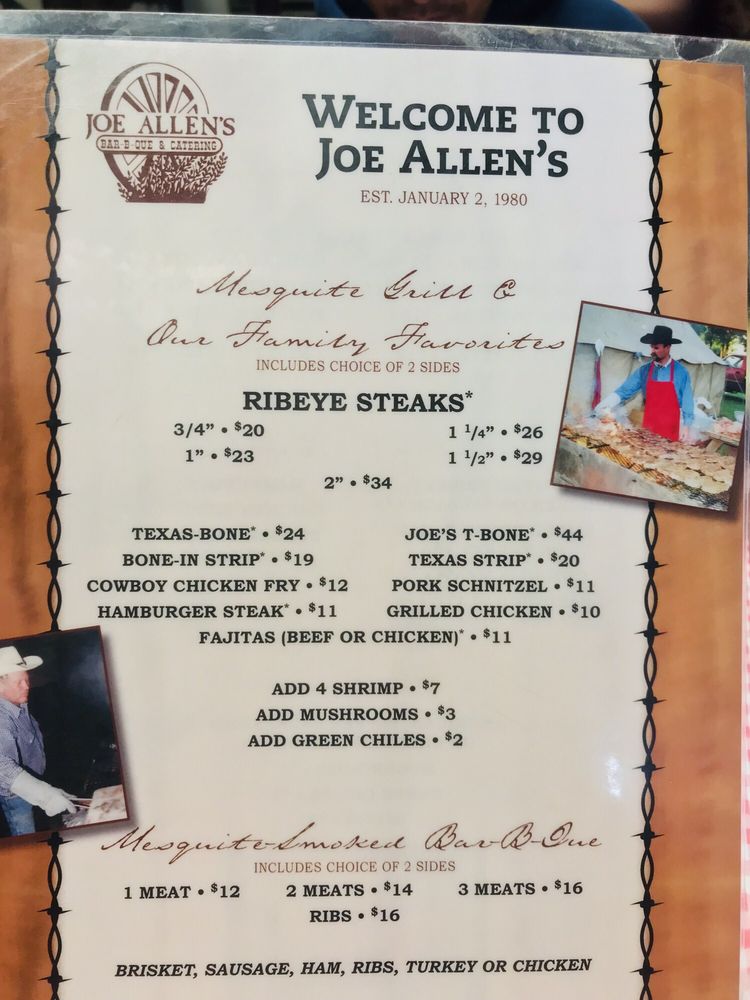 JOE ALLEN'S
BAR-B-QUE & CATERING
WELCOME TO
JOE ALLEN'S
EST. JANUARY 2, 1980
Mesquite Grill &
Our Family Favorites
INCLUDES CHOICE OF 2 SIDES
RIBEYE STEAKS*
3/4" • $20 1 1/4" • $26
1" • $23 1 1/2" • $29
2" • $34
TEXAS-BONE* • $24 JOE'S T-BONE* • $44
BONE-IN STRIP* • $19 TEXAS STRIP* • $20
COWBOY CHICKEN FRY • $12 PORK SCHNITZEL • $11
HAMBURGER STEAK* • $11 GRILLED CHICKEN • $10
FAJITAS (BEEF OR CHICKEN)* • $11
ADD 4 SHRIMP • $7
ADD MUSHROOMS • $3
ADD GREEN CHILES • $2
Mesquite-Smoked Bar-B-Que
INCLUDES CHOICE OF 2 SIDES
1 MEAT • $12 2 MEATS • $14 3 MEATS • $16
RIBS • $16
BRISKET, SAUSAGE, HAM, RIBS, TURKEY OR CHICKEN